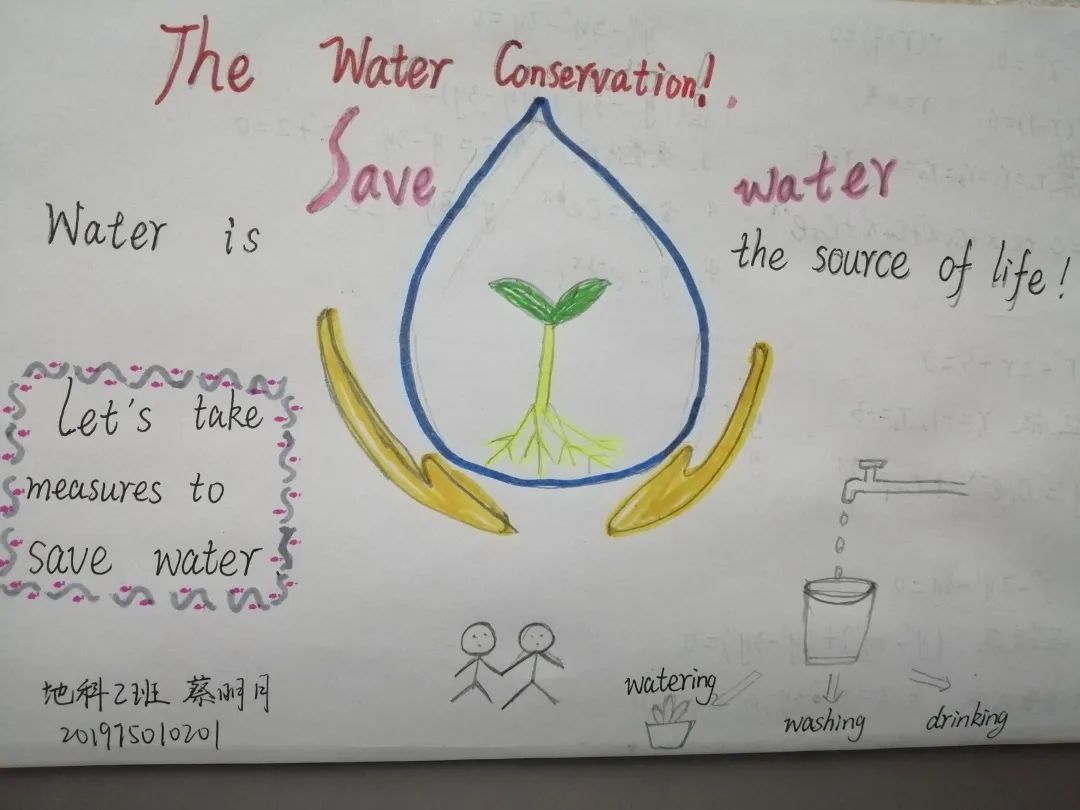 The Water Conservation!.
Save water
Water is the source of life!
Let's take
measures to
save water
watering
washing
drinking
地科2班 蔡明月
201975010201